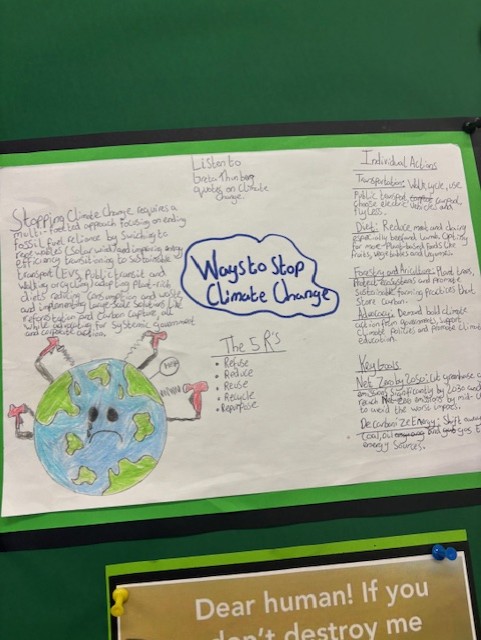 Listen to
Greta Thunberg
quotes on climate
change.
Stopping Climate Change requires a
multi-faceted approach focusing on ending
fossil fuel reliance by switching to
renewables (Solar, wind) and improving energy
efficiency transitioning to sustainable
transport (EVs, Public transit and
walking or cycling) adopting Plant-rich
diets reducing consumption and waste
and implementing large scale solutions like
reforestation and Carbon Capture, all
while advocating for systemic government
and corporate action.
Ways to Stop
Climate Change
The 5 R's
• Refuse
• Reduce
• Reuse
• Recycle
• Repurpose
Individual Actions
Transportation: Walk, cycle, use
Public transport, carpool,
choose electric vehicles and
fly less.
Diet: Reduce meat and dairy
especially beef and lamb Opting
for more Plant-based foods like
fruits, vegetables and legumes.
Forestry and Agriculture: Plant trees,
Protect ecosystems and Promote
sustainable farming Practices that
Store carbon.
Advocacy: Demand bold climate
action from governments,
Climate Policies and Promote climate
education.
Key goals
Net Zero by 2050: Cut greenhouse
emissions significantly by 2030 and
reach Net-zero emissions by mid-
to avoid the worst
Decarbonize Energy: Shift away
Coal, oil and gas
energy Sources.
Dear human! If you
don't destroy me